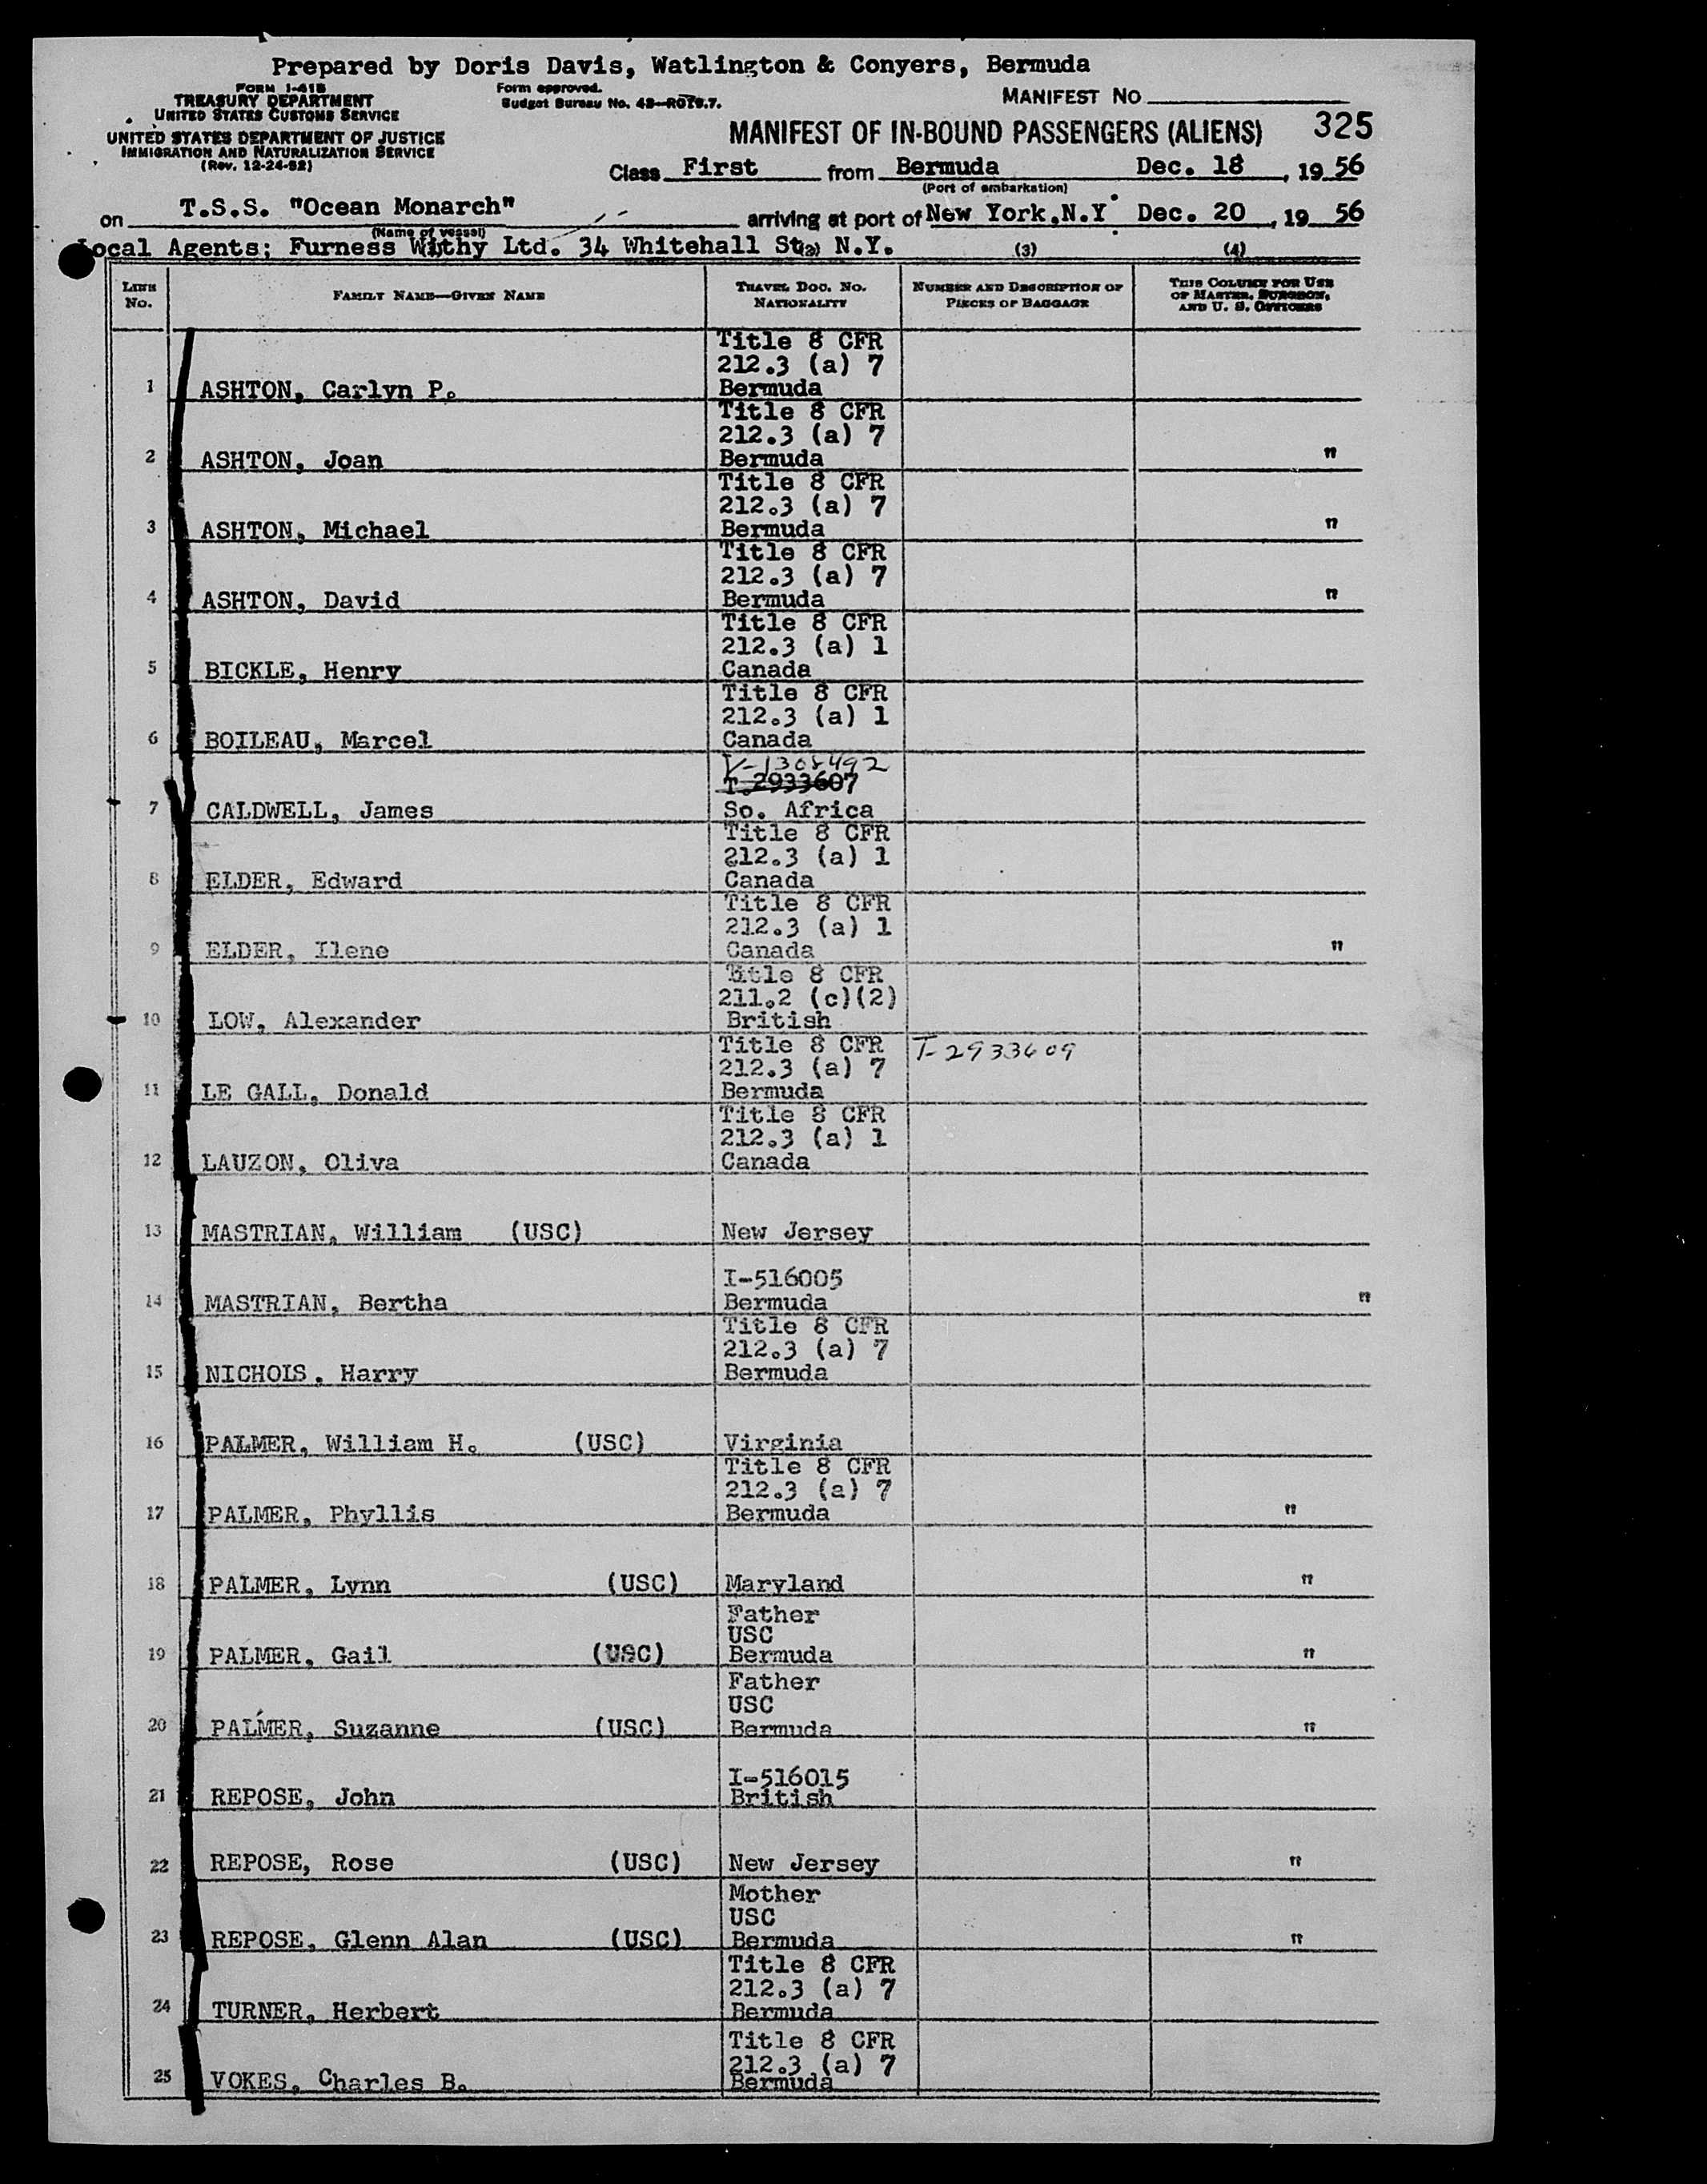 Prepared by Doris Davis, Watlington & Conyers, Bermuda
FORM I-418
TREASURY DEPARTMENT
UNITED STATES CUSTOMS SERVICE
UNITED STATES DEPARTMENT OF JUSTICE
IMMIGRATION AND NATURALIZATION SERVICE
(Rev. 12-24-52)
Form approved.
Budget Bureau No. 43—R079.7.
MANIFEST NO
325
MANIFEST OF IN-BOUND PASSENGERS (ALIENS)
Class First from Bermuda Dec. 18, 1956
(Port of embarkation)
on T.S.S. "Ocean Monarch" arriving at port of New York, N.Y Dec. 20, 1956
(Name of vessel)
Local Agents; Furness Withy Ltd. 34 Whitehall St. N.Y.
(2) (3) (4)
LINE No. FAMILY NAME—GIVEN NAME TRAVEL DOC. NO. NATIONALITY NUMBER AND DESCRIPTION OF PIECES OF BAGGAGE THIS COLUMN FOR USE OF MASTER, SURGEON, AND U. S. OFFICERS
Title 8 CFR
212.3 (a) 7
1 ASHTON, Carlyn P. Bermuda
Title 8 CFR
212.3 (a) 7
2 ASHTON, Joan Bermuda "
Title 8 CFR
212.3 (a) 7
3 ASHTON, Michael Bermuda "
Title 8 CFR
212.3 (a) 7
4 ASHTON, David Bermuda "
Title 8 CFR
212.3 (a) 1
5 BICKLE, Henry Canada
Title 8 CFR
212.3 (a) 1
6 BOILEAU, Marcel Canada
V-1308492
T.2933607
7 CALDWELL, James So. Africa
Title 8 CFR
212.3 (a) 1
8 ELDER, Edward Canada
Title 8 CFR
212.3 (a) 1
9 ELDER, Ilene Canada "
Title 8 CFR
211.2 (c)(2)
10 LOW, Alexander British
Title 8 CFR T-2933609
212.3 (a) 7
11 LE GALL, Donald Bermuda
Title 8 CFR
212.3 (a) 1
12 LAUZON, Oliva Canada
13 MASTRIAN, William (USC) New Jersey
I-516005
14 MASTRIAN, Bertha Bermuda "
Title 8 CFR
212.3 (a) 7
15 NICHOLS, Harry Bermuda
16 PALMER, William H. (USC) Virginia
Title 8 CFR
212.3 (a) 7
17 PALMER, Phyllis Bermuda "
18 PALMER, Lynn (USC) Maryland "
Father
USC
19 PALMER, Gail (USC) Bermuda "
Father
USC
20 PALMER, Suzanne (USC) Bermuda "
I-516015
21 REPOSE, John British
22 REPOSE, Rose (USC) New Jersey "
Mother
USC
23 REPOSE, Glenn Alan (USC) Bermuda "
Title 8 CFR
212.3 (a) 7
24 TURNER, Herbert Bermuda
Title 8 CFR
212.3 (a) 7
25 VOKES, Charles B. Bermuda